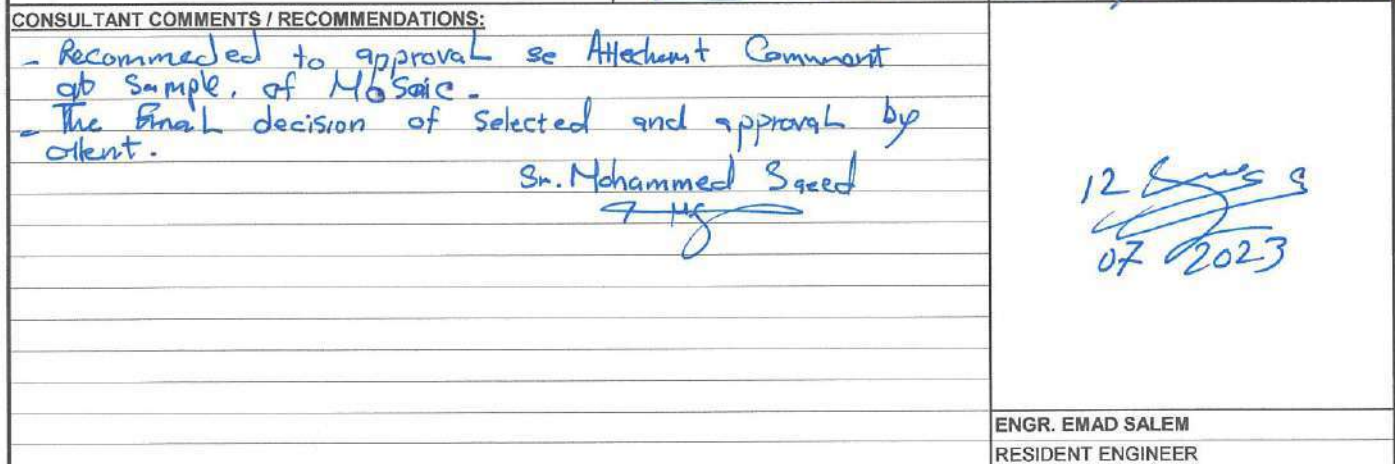 CONSULTANT COMMENTS / RECOMMENDATIONS:
- Recommeded to approval se Attechemt Comment
at Sample. of Mosaic -
- The final decision of Selected and approval by
client.
Sr. Mohammed Saeed
12
07 2023
ENGR. EMAD SALEM
RESIDENT ENGINEER